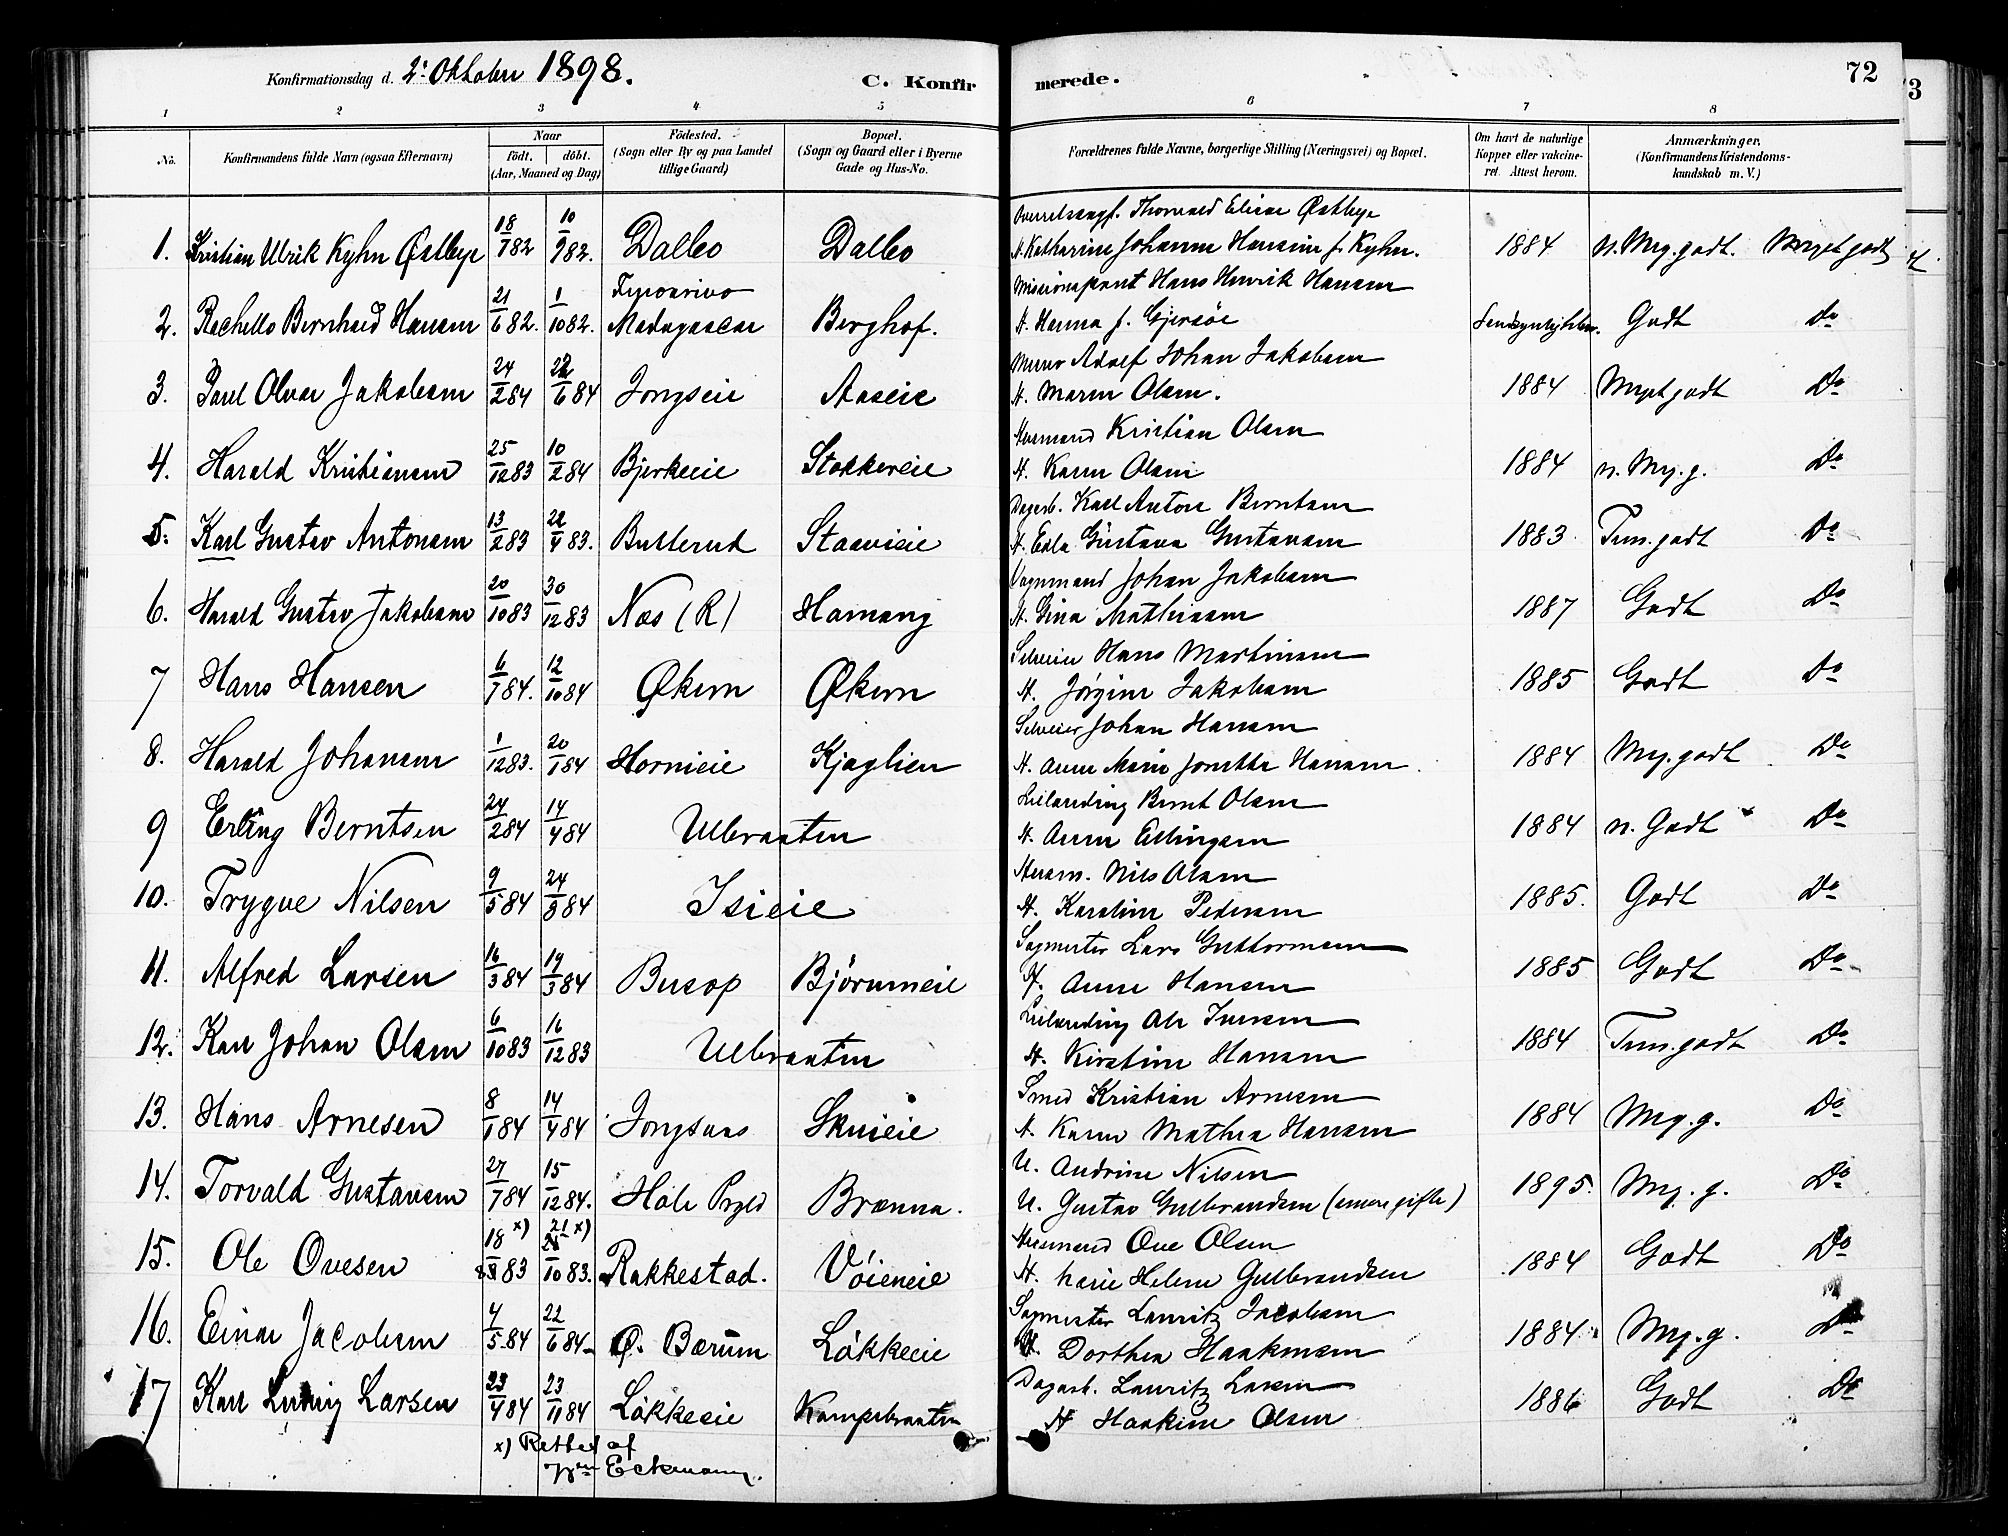 Konfirmationsdag d. 2: Oktober 1898.
C. Konfirmerede.
72
73
1 2 3 4 5 6 7 8
No.
Konfirmandens fulde Navn (ogsaa Efternavn)
Naar
födt. döbt.
(Aar, Maaned og Dag)
Födested.
(Sogn eller By og paa Landet
tillige Gaard)
Bopæl.
(Sogn og Gaard eller i Byerne
Gade og Hus-No.
Forældrenes fulde Navne, borgerlige Stilling (Næringsvei) og Bopæl.
Om havt de naturlige
Kopper eller vakcine-
ret. Attest herom.
Anmærkninger.
(Konfirmandens Kristendoms-
kundskab m. V.)
1. Kristian Ulrik Kyhn Østbye 18/7 82 10/9 82. Dalbo Dalbo
Thorvald Elieser Østbye
H. Katharine Johanne Hansine f. Kyhn. 1884 n. Mg. godt. Meget godt
2. Bernhard Hansen 21/6 82. 1/10 82. Madagascar Berghof.
Missionsprest Hans Henrik Hansen
H. Hanna f. Gjersöe Godt Do
3. Paul Olver Jakobsen 24/2 84 22/6 84 Jongseie Aaseie
Murer Adolf Johan Jakobsen
H. Maren Olsen. 1884 Meget godt Do
4. Harald Kristiansen 25/12 83 10/2 84 Bjerkeeie Stokkereie
Husmand Kristian Olsen
H. Karen Olsen 1884 n. Mg. g. Do
5. Karl Gustav Antonsen 13/2 83 22/4 83. Butterud Staavieie
Dagarb. Karl Anton Berntsen
H. Edla Gustava Gustavsen 1883 Tem. godt Do
6. Harald Gustav Jakobsen 20/10 83 30/12 83 Næs (R) Hamang
Vognmand Johan Jakobsen
H. Gina Mathisen 1887 Godt Do
7 Hans Hansen 6/7 84. 12/10 84 Økern Økern
Selveier Hans Martinsen
H. Jörgine Jakobsen 1885 Godt Do
8. Harald Johansen 1/12 83. 20/1 84 Hornieie Kjaglien
Selveier Johan Hansen
H. Anne Marie Hansen 1884 Mg. godt Do
9 Erling Berntsen 24/2 84 14/4 84 Ulbraaten
Leilænding Bernt Olsen
H. Anne Ellingsen 1884 n. Godt Do
10. Trygve Nilsen 9/5 84 24/8 84 Isieie
Husm. Nils Olsen
H. Karoline Pedersen 1885. Godt Do
11. Alfred Larsen 16/3 84 19/3 84 Busop Björumeie
Sagmester Lars Guttormsen
H. Anne Hansen 1885 Godt Do
12. Karl Johan Olsen 6/10 83 16/12 83 Ulbraaten
Leilænding Ole Iversen
H. Kirstine Hansen 1884 Tem. godt Do
13. Hans Arnesen 8/1 84 14/4 84 Jongsaas Skuieie
Smed Kristian Arnesen
H. Karen Mathea Hansen 1884 Mg. g. Do
14. Torvald Gustavsen 27/7 84 15/12 84. Hole Brænna.
U. Andrine Nilsen
U. Gustav Gulbrandsen (senere gifte) 1895. Mg. g. Do
15. Ole Ovesen 18 x) 83 21 x)/10 83. Rakkestad. Vöieneie
Husmand Ove Olsen
H. Marie Helene Gulbrandsen 1884 Godt Do
16. Einar Jacobsen 4/5 84 22/6 84 Ø. Bærum Løkkeeie
Sagmester Lauritz Jacobsen
H. Dorthea Haakensen 1884 Mg. g. Do
17 Karl Ludvig Larsen 23/4 84 23/11 84 Løkkeeie Kampebraaten
Dagarb. Lauritz Larsen
H. Haakine Olsen 1886 Godt Do
x) Rettet af
Eckmann.